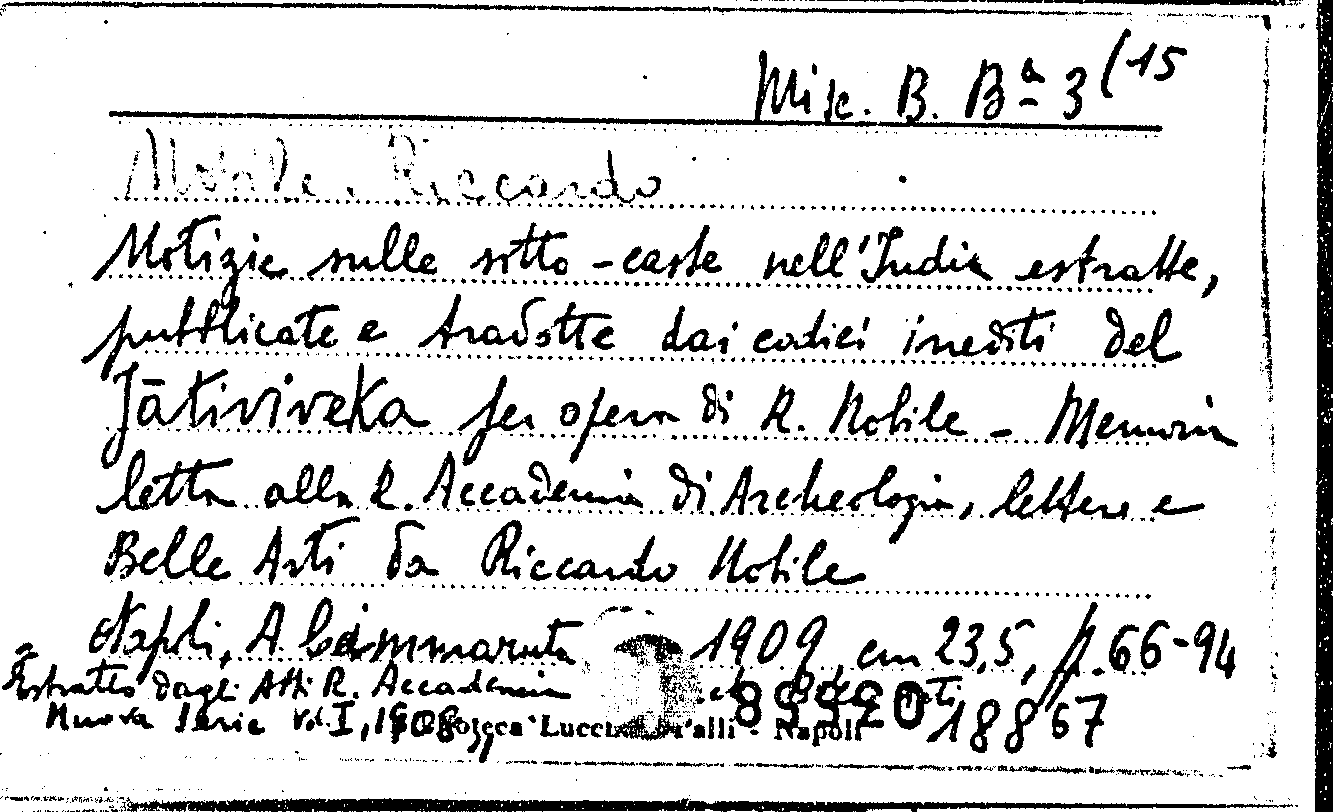 Misc. B. Bª 3 (15
Nobile Riccardo
Notizie sulle sotto-caste nell'India estratte,
pubblicate e tradotte dai codici inediti del
Jātiviveka per opera di R. Nobile - Memoria
letta alla R. Accademia di Archeologia, lettere e
Belle Arti da Riccardo Nobile
Napoli, A. Cimmaruta 1909, cm 23,5, p. 66-94
Estratto dagli Atti R. Accademia
Nuova Serie Vol. I, Lucchesi Palli - Napoli 18867